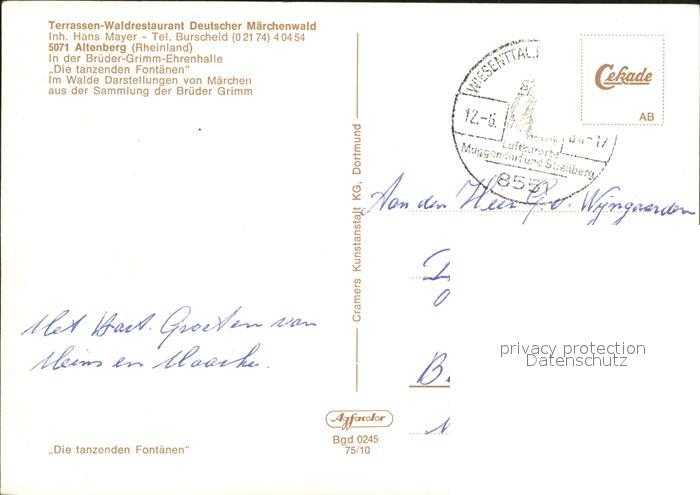 Terrassen-Waldrestaurant Deutscher Märchenwald
Inh. Hans Mayer - Tel. Burscheid (0 21 74) 4 04 54
5071 Altenberg (Rheinland)
In der Brüder-Grimm-Ehrenhalle
„Die tanzenden Fontänen"
Im Walde Darstellungen von Märchen
aus der Sammlung der Brüder Grimm
Cekade
AB
WIESENTTAL
12.-6.
-17
Luftkurorte
Muggendorf und Streitberg
8551
Cramers Kunstanstalt KG, Dortmund
Aan den Heer v. Wijngaarden
Met Hart. Groeten van
Heins en
privacy protection
Datenschutz
Agfacolor
Bgd 0245
75/10
„Die tanzenden Fontänen"